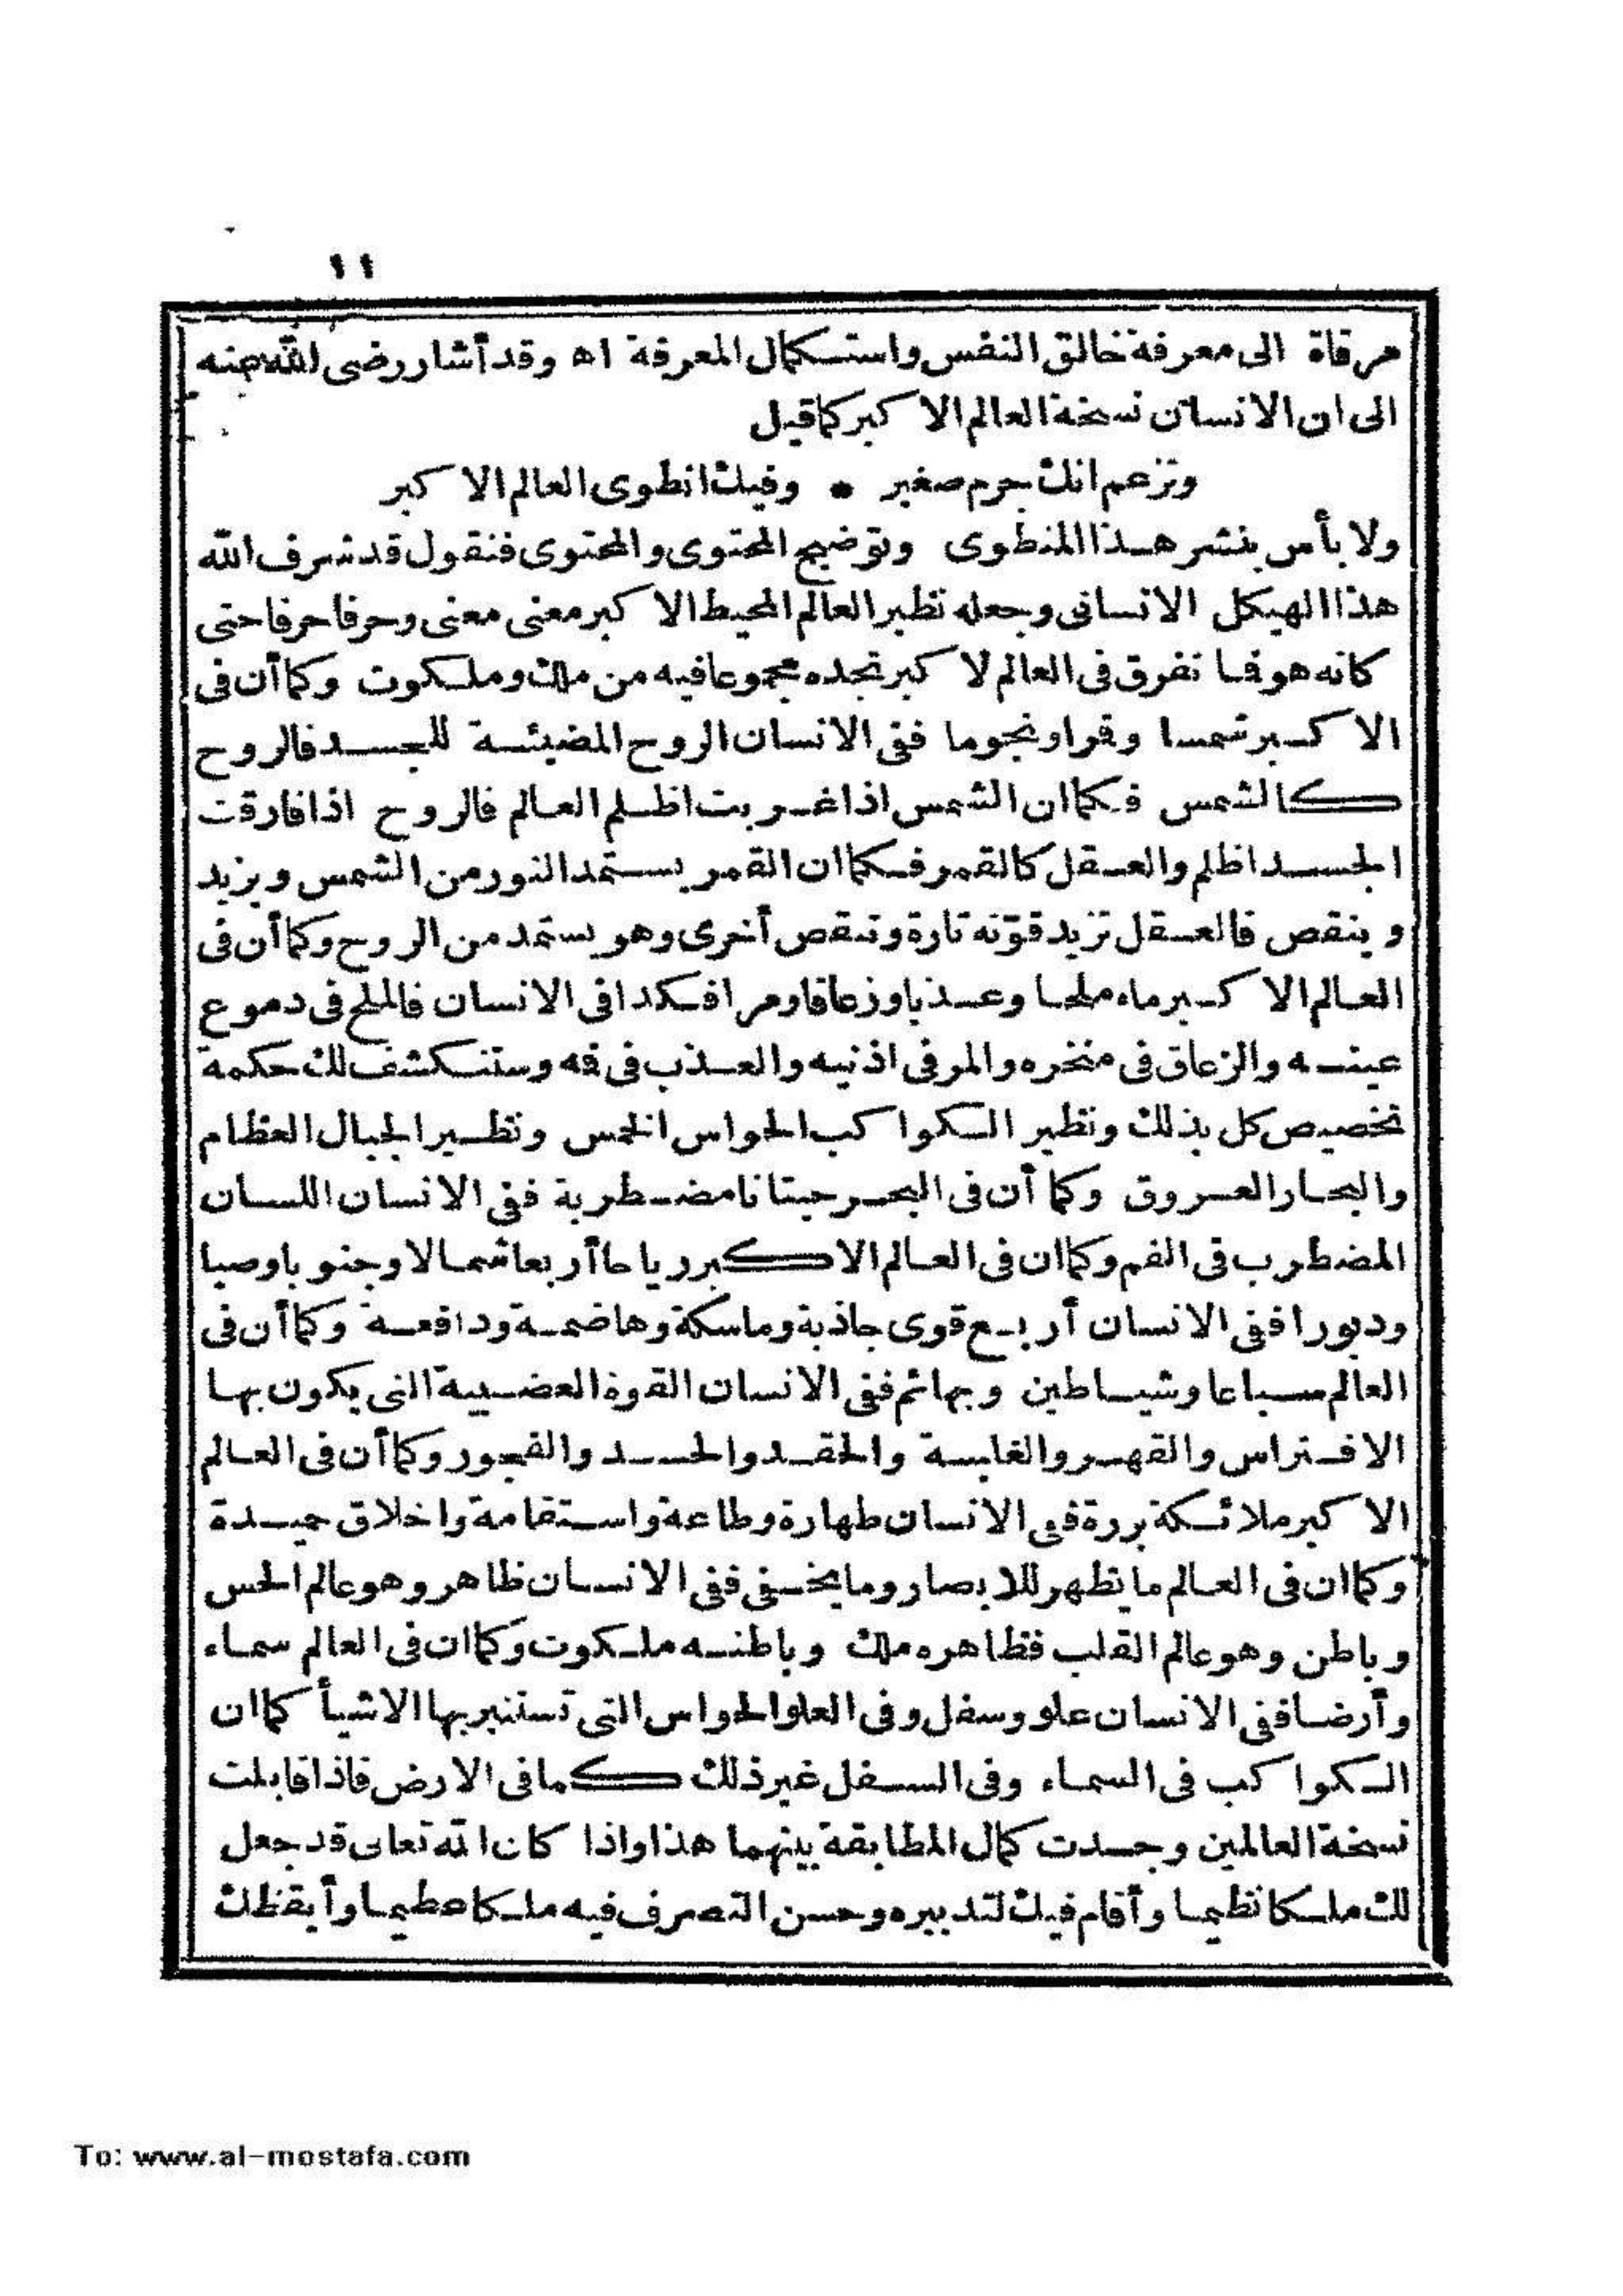 ١١
مرقاة الى معرفة خالق النفس واستكمال المعرفة اه وقد أشار رضى الله عنه
الى ان الانسان نسخة العالم الاكبر كما قيل
وتزعم انك جرم صغير * وفيك انطوى العالم الاكبر
ولا بأس بنشر هذا المنطوى وتوضيح المحتوى والمحتوى فنقول قد شرف الله
هذا الهيكل الانسانى وجعله نظير العالم المحيط الاكبر معنى معنى وحرفا حرفا حتى
كانه هو فما تفرق فى العالم لاكبر تجده مجموعا فيه من ملك وملكوت وكما أن فى
الاكبر شمسا وقرا ونجوما ففى الانسان الروح المضيئة للجسد فالروح
كالشمس فكما ان الشمس اذا غربت اظلم العالم فالروح اذا فارقت
الجسد اظلم والعقل كالقمر فكما ان القمر يستمد النور من الشمس ويزيد
وينقص فالعقل تزيد قوّته تارة وتنقص أخرى وهو يستمد من الروح وكما أن فى
العالم الاكبر ماء ملحا وعذبا وزعاقا ومرا فكذا فى الانسان فالملح فى دموع
عينه والزعاق فى منخره والمر فى اذنيه والعذب فى فه وستنكشف لك حكمة
تخصيص كل بذلك ونظير الكواكب الحواس الخمس ونظير الجبال العظام
والبحار العروق وكما أن فى البحر حيتانا مضطربة ففى الانسان اللسان
المضطرب فى الفم وكما ان فى العالم الاكبر رياحا أربعا شمالا وجنوبا وصبا
ودبورا ففى الانسان أربع قوى جاذبة وماسكة وهاضمة ودافعة وكما أن فى
العالم سباعا وشياطين وبهائم ففى الانسان القوة الغضبية التى يكون بها
الافتراس والقهر والغلبة والحقد والحسد والفجور وكما أن فى العالم
الاكبر ملائكة بررة ففى الانسان طهارة وطاعة واستقامة واخلاق حميدة
وكما ان فى العالم ما يظهر للابصار وما يخفى ففى الانسان ظاهر وهو عالم الحس
وباطن وهو عالم القلب فظاهره ملك وباطنه ملكوت وكما ان فى العالم سماء
وأرضا ففى الانسان علو وسفل وفى العلو الحواس التى تستنير بها الاشيأ كما ان
الكواكب فى السماء وفى السفل غير ذلك كما فى الارض فاذا قابلت
نسخة العالمين وجدت كمال المطابقة بينهما هذا واذا كان الله تعالى قد جعل
لك ملكا نظيما وأقام فيك لتدبيره وحسن التصرف فيه ملكا عظيما وأيقظك
To: www.al-mostafa.com